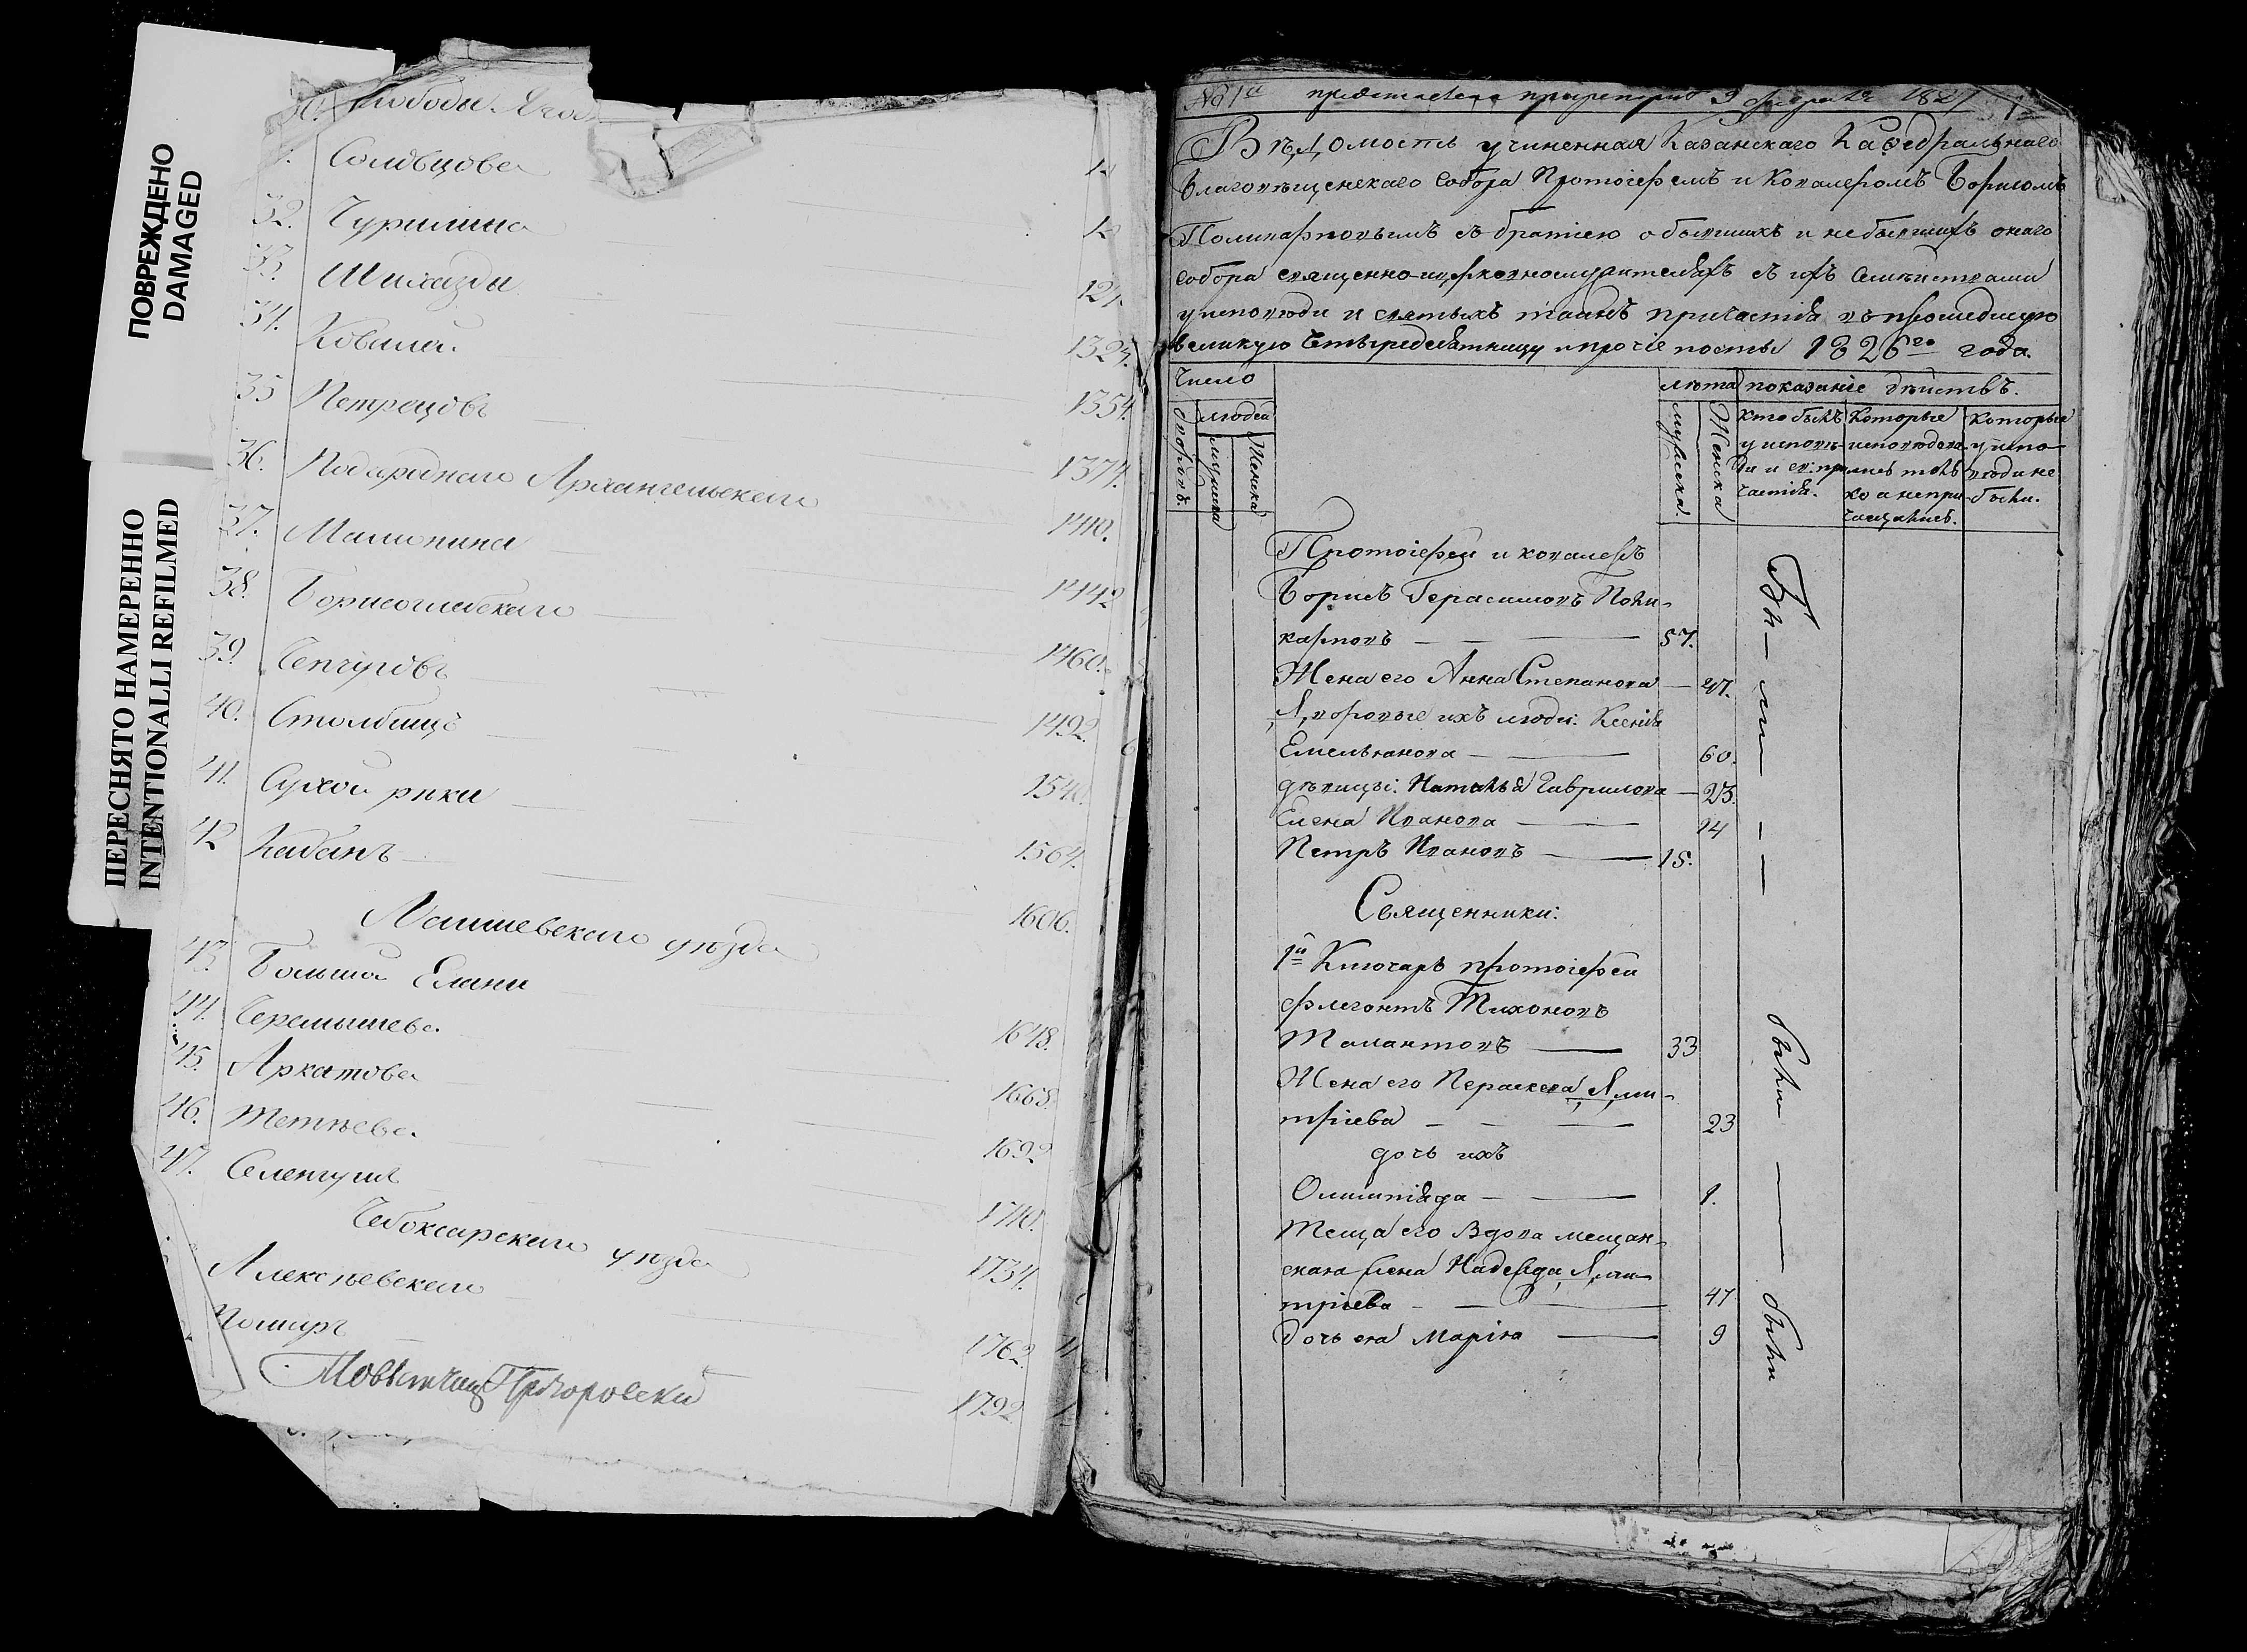 ПОВРЕЖДЕНО
DAMAGED
ПЕРЕСНЯТО НАМЕРЕННО
INTENTIONALLI REFILMED
Слободы
Солѡвцова
32. Чурилина
33. Шигазды
34. Ковали. 132
35 Петрецовъ 1354.
36. Подгороднаго Архангельскаго 1374.
37. Малюпина 1410.
38. Борисоглебскаго 1442
39. Чепчуговъ 1460.
40. Столбищъ 1492.
41. Сухой рѣки 154
42 Кабанъ 1564.
Лаишевскаго уѣзда 1606.
43. Большія Елани
44. Черемышева. 1648.
45. Аркатова 1668.
46. Тетѣева. 1692
47. Селенгушъ 1710.
Чебоксарскаго уѣзда
Алексѣевскаго 1734.
Помаръ 1762.
1792
№ 1й 3 февраля 1827
Вѣдомость учиненная Казанскаго Кафедральнаго
Благовѣщенскаго Собора Протоіереемъ и Кавалеромъ Борисомъ
Поликарповымъ съ братіею о бывшихъ и не бывшихъ онаго
собора священно-церковнослужителяхъ съ ихъ Семействами
у исповѣди и святыхъ таинъ причастія въ прошедшую
великую Четыредесятницу и прочіе посты 1826го года.
Число
людей
дворовъ.
мужеска
Женска
лѣта
мужеска.
Женска
показаніе дѣйствъ.
кто былъ у исповѣди и св: причастія.
Которые исповѣдовались толь ко а не причащались.
которые у исповѣди не были.
Протоіерей и кавалеръ
Борисъ Герасимовъ Поли-
карповъ — 57.
Жена его Анна Степанова — 47.
Дворовые ихъ люди: Ксенія
Емельянова — 60.
дѣвицы: Наталья Гаврилова — 23.
Елена Иванова — 14
Петръ Ивановъ — 15.
Бы — ли —
Священники:
1й Ключарь протоіерей
Флегонтъ Тихоновъ
Талантовъ — 33
Жена его Параскева Дми-
тріева — 23
дочь ихъ
Олимпіада — 1.
Теща его вдова мещан-
ская жена Надежда Дми-
тріева — 47
Дочь ея Марія — 9
были — были